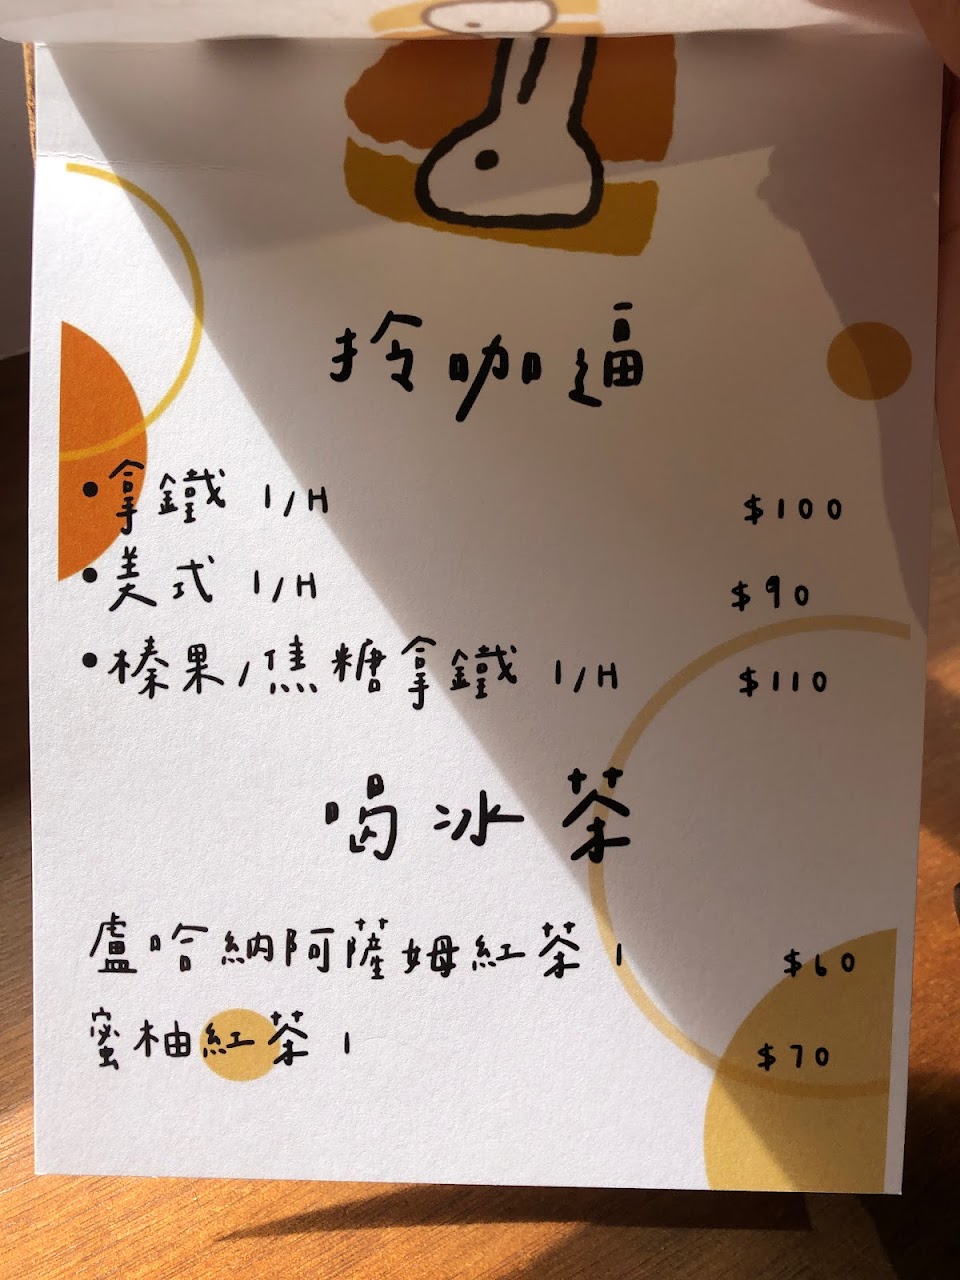 拎咖逼
•拿鐵 I/H $100
•美式 I/H $90
•榛果/焦糖拿鐵 I/H $110
喝冰茶
盧哈納阿薩姆紅茶 I $60
蜜柚紅茶 I $70